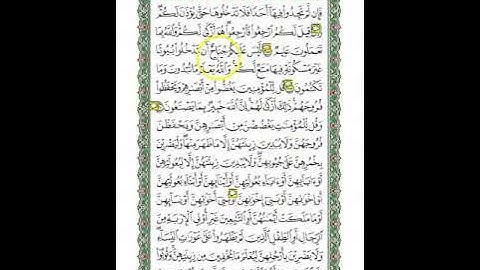 فَإِن لَّمْ تَجِدُوا۟ فِيهَآ أَحَدًا فَلَا تَدْخُلُوهَا حَتَّىٰ يُؤْذَنَ لَكُمْ
وَإِن قِيلَ لَكُمُ ٱرْجِعُوا۟ فَٱرْجِعُوا۟ هُوَ أَزْكَىٰ لَكُمْ وَٱللَّهُ بِمَا
تَعْمَلُونَ عَلِيمٌ لَّيْسَ عَلَيْكُمْ جُنَاحٌ أَن تَدْخُلُوا۟ بُيُوتًا
غَيْرَ مَسْكُونَةٍ فِيهَا مَتَٰعٌ لَّكُمْ وَٱللَّهُ يَعْلَمُ مَا تُبْدُونَ وَمَا
تَكْتُمُونَ قُل لِّلْمُؤْمِنِينَ يَغُضُّوا۟ مِنْ أَبْصَٰرِهِمْ وَيَحْفَظُوا۟
فُرُوجَهُمْ ذَٰلِكَ أَزْكَىٰ لَهُمْ إِنَّ ٱللَّهَ خَبِيرٌۢ بِمَا يَصْنَعُونَ
وَقُل لِّلْمُؤْمِنَٰتِ يَغْضُضْنَ مِنْ أَبْصَٰرِهِنَّ وَيَحْفَظْنَ
فُرُوجَهُنَّ وَلَا يُبْدِينَ زِينَتَهُنَّ إِلَّا مَا ظَهَرَ مِنْهَا وَلْيَضْرِبْنَ
بِخُمُرِهِنَّ عَلَىٰ جُيُوبِهِنَّ وَلَا يُبْدِينَ زِينَتَهُنَّ إِلَّا لِبُعُولَتِهِنَّ
أَوْ ءَابَآئِهِنَّ أَوْ ءَابَآءِ بُعُولَتِهِنَّ أَوْ أَبْنَآئِهِنَّ أَوْ أَبْنَآءِ بُعُولَتِهِنَّ
أَوْ إِخْوَٰنِهِنَّ أَوْ بَنِىٓ إِخْوَٰنِهِنَّ أَوْ بَنِىٓ أَخَوَٰتِهِنَّ أَوْ نِسَآئِهِنَّ
أَوْ مَا مَلَكَتْ أَيْمَٰنُهُنَّ أَوِ ٱلتَّٰبِعِينَ غَيْرِ أُو۟لِى ٱلْإِرْبَةِ مِنَ
ٱلرِّجَالِ أَوِ ٱلطِّفْلِ ٱلَّذِينَ لَمْ يَظْهَرُوا۟ عَلَىٰ عَوْرَٰتِ ٱلنِّسَآءِ
وَلَا يَضْرِبْنَ بِأَرْجُلِهِنَّ لِيُعْلَمَ مَا يُخْفِينَ مِن زِينَتِهِنَّ وَتُوبُوٓا۟